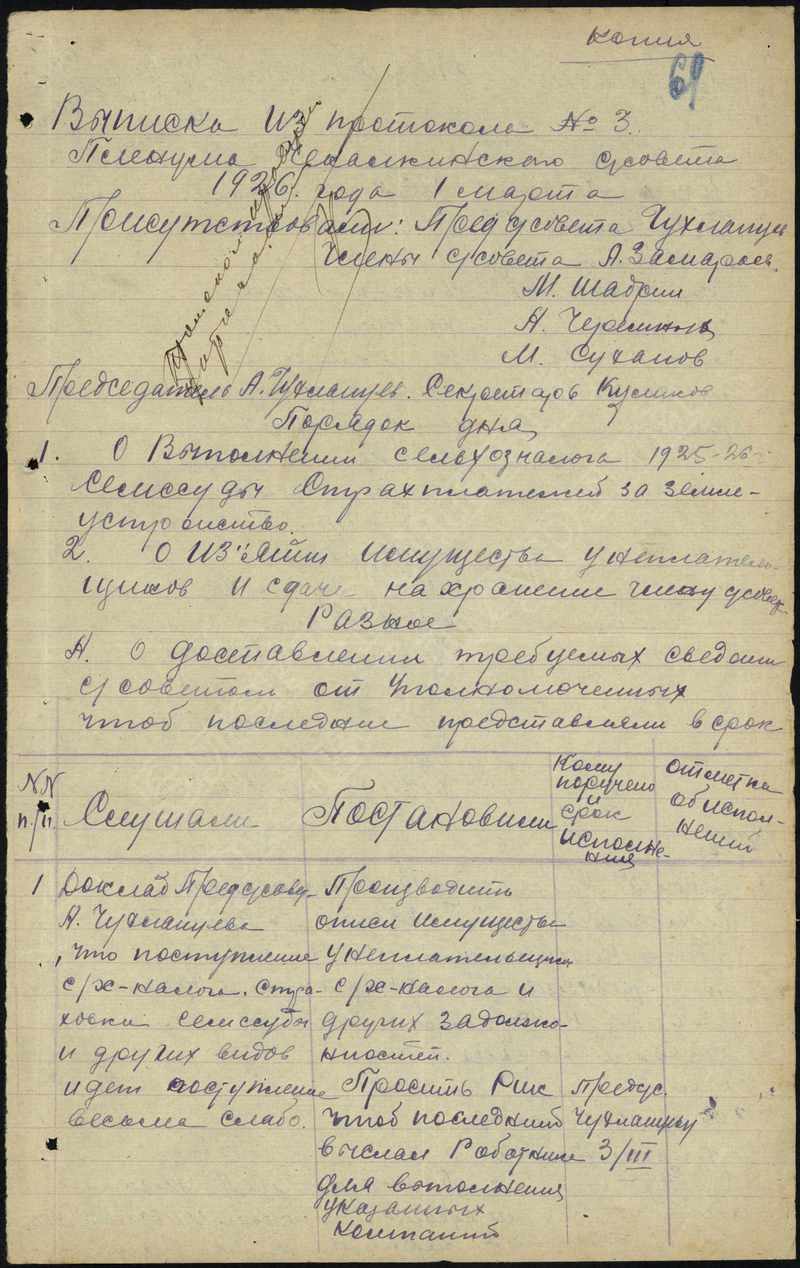 Копия
69
Выписка из протокола № 3.
Пленума Чекалкинского с/совета
1926 года 1 марта
Присутствовали: Пред с/совета Чухланцев
Члены с/совета А. Замараев
М. Шабрин
А.
М. Суханов
Председатель А. Чухланцев. Секретарь Куликов
Порядок дня
1. О Выполнении сельхозналога 1925-26
Семссуды Страхплатежей за земле-
устройство.
2. О из"ятии имущества у неплатель-
щиков и сдаче на хранение члену с/совет
Разное
А. О доставлении требуемых сведени
с/советом от уполномоченных
чтоб последние представляли в срок
NN п./п.
Слушали
Постановили
Кому поручено и срок исполне-ния
отметка об испол-нении
1
Доклад Предс/сове-
А. Чухланцева
, что поступление
с/х-налога. Стра-
ховки семссуды
и других видов
идет поступление
весьма слабо.
Производить
описи имущества
у неплательщик
с/х-налога и
других задолжо-
нностей.
Просить Рик
чтоб последний
выслал Работник
для выполнения
указанных
компаний
Предс.
Чухланцеву
3/III